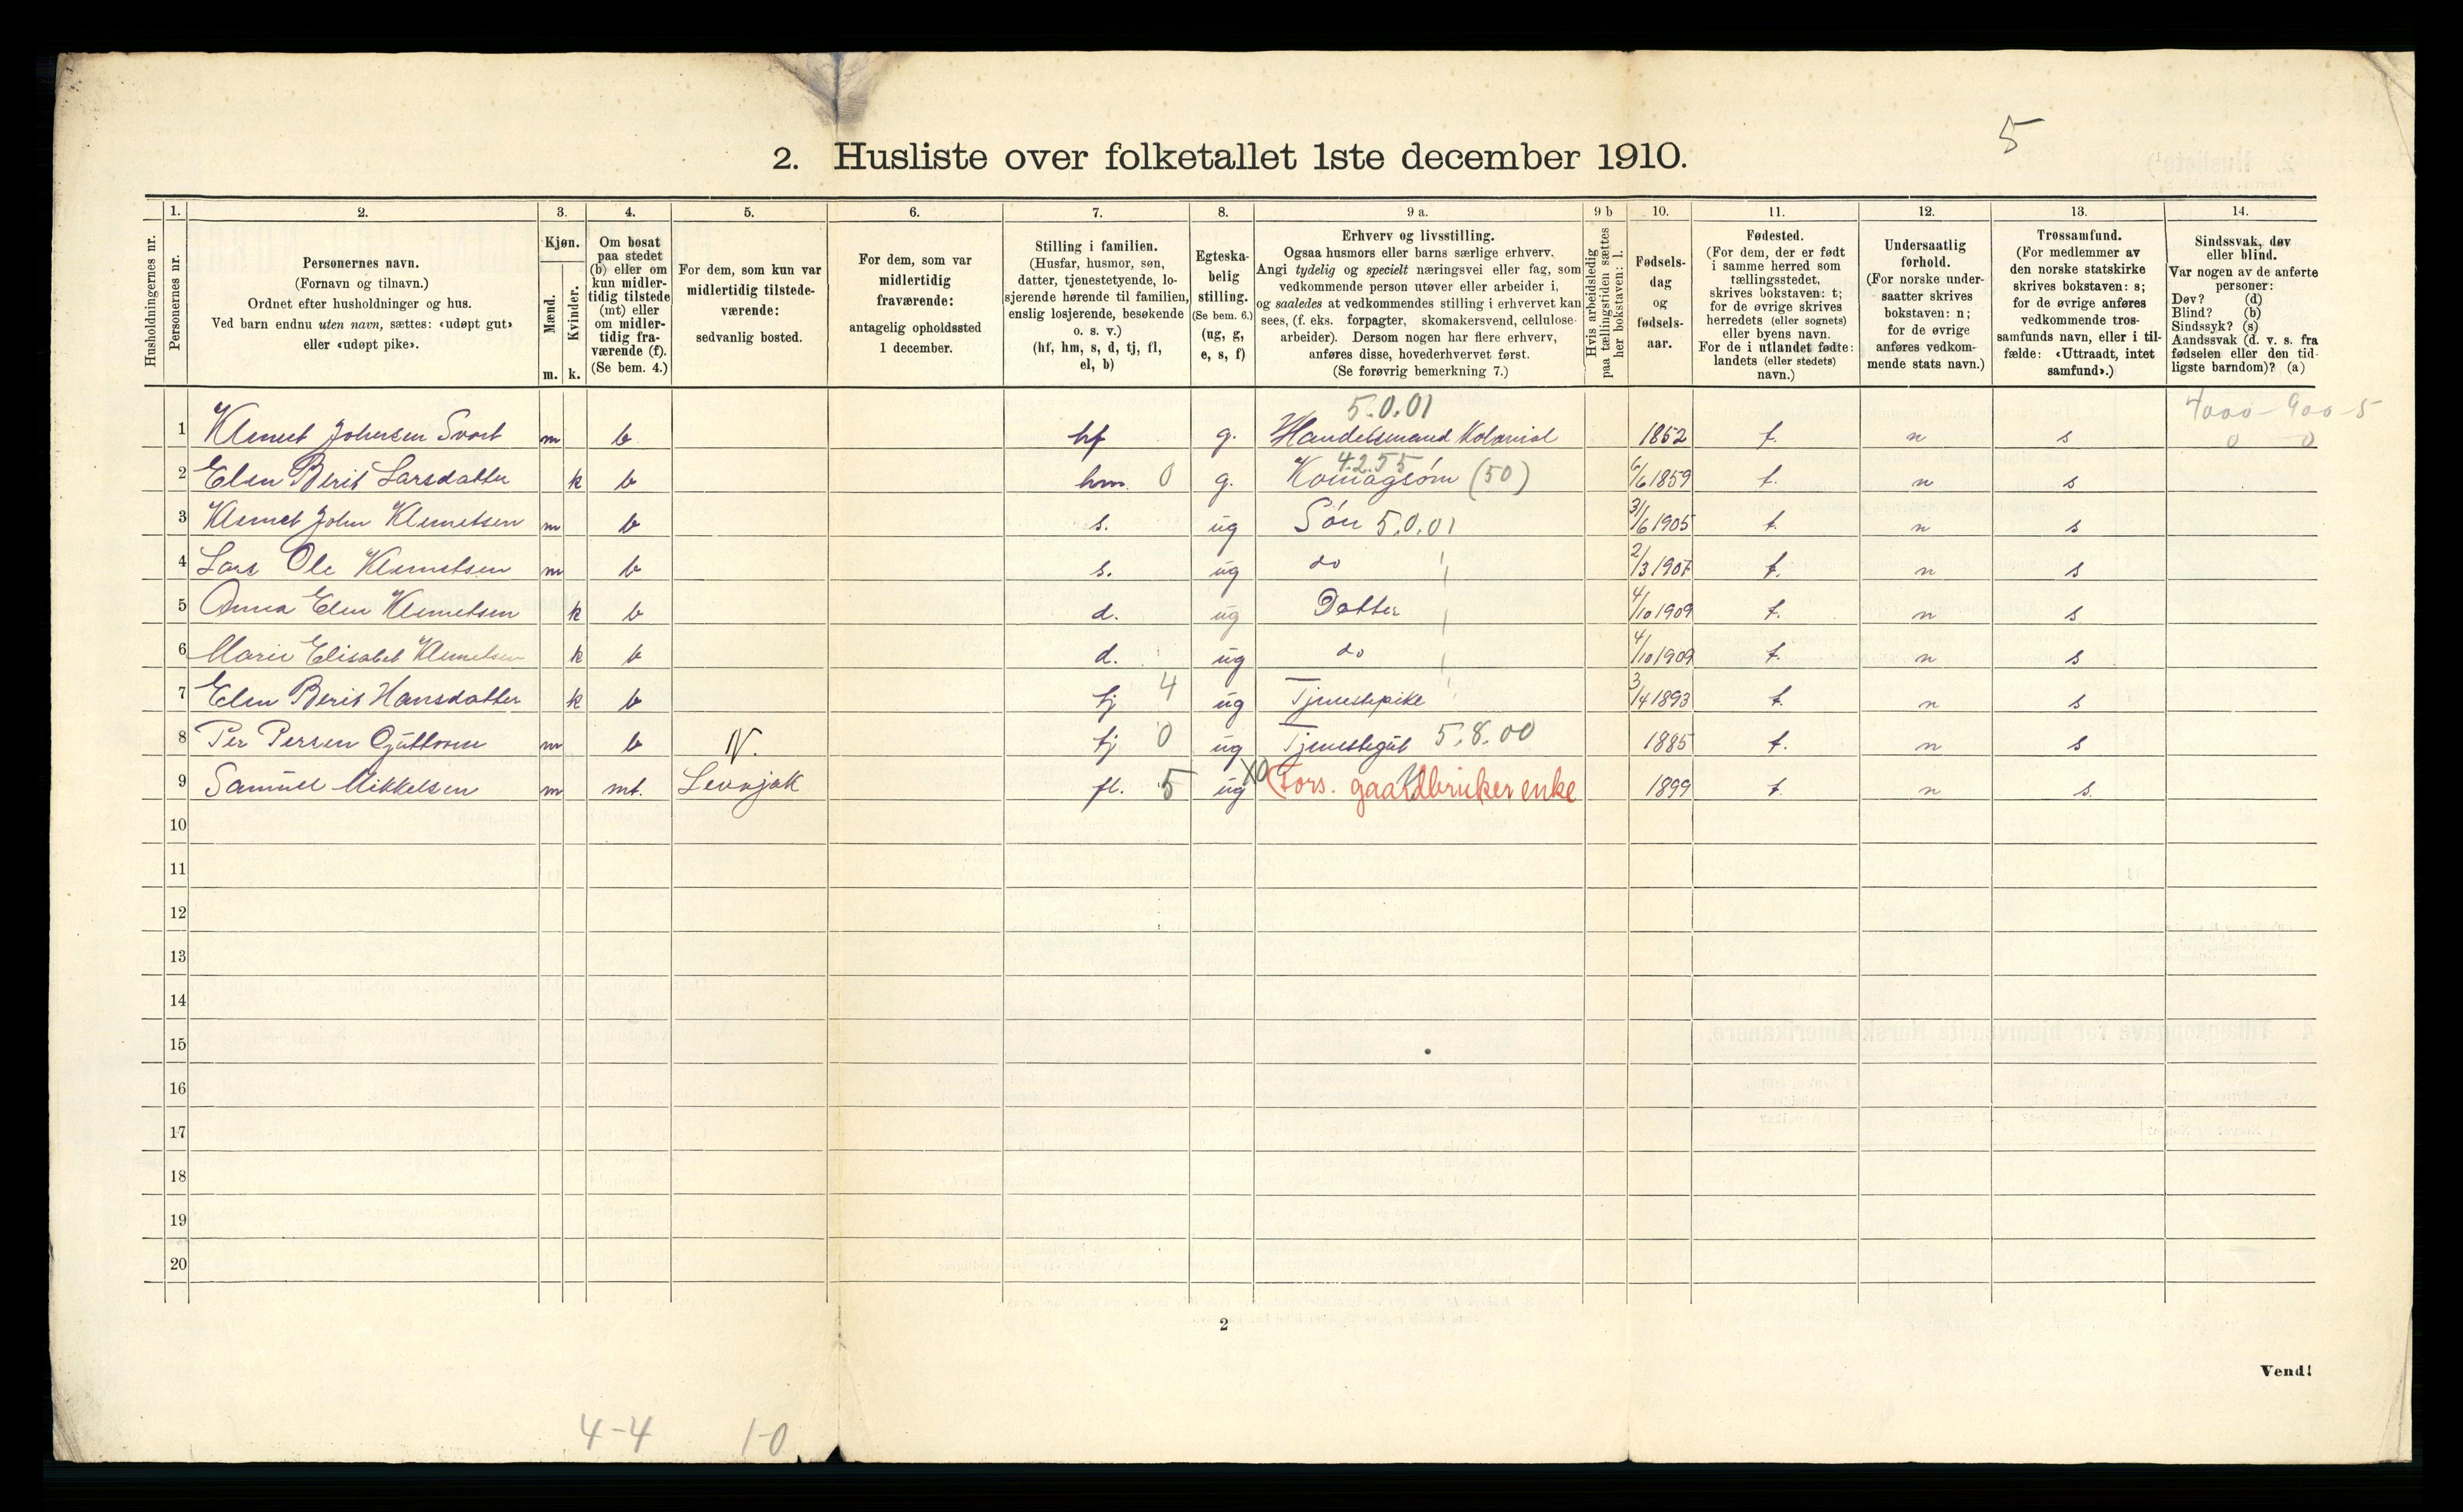 5
2. Husliste over folketallet 1ste december 1910.
Husholdningernes nr.
1.
Personernes nr.
2.
Personernes navn.
(Fornavn og tilnavn.)
Ordnet efter husholdninger og hus.
Ved barn endnu uten navn, sættes: «udøpt gut»
eller «udøpt pike».
3.
Kjøn.
Mænd.
Kvinder.
m. k.
4.
Om bosat
paa stedet
(b) eller om
kun midler-
tidig tilstede
(mt) eller
om midler-
tidig fra-
værende (f).
(Se bem. 4.)
5.
For dem, som kun var
midlertidig tilstede-
værende:
sedvanlig bosted.
6.
For dem, som var
midlertidig
fraværende:
antagelig opholdssted
1 december.
7.
Stilling i familien.
(Husfar, husmor, søn,
datter, tjenestetyende, lo-
sjerende hørende til familien,
enslig losjerende, besøkende
o. s. v.)
(hf, hm, s, d, tj, fl,
el, b)
8.
Egteska-
belig
stilling.
(Se bem. 6.)
(ug, g,
e, s, f)
9 a.
Erhverv og livsstilling.
Ogsaa husmors eller barns særlige erhverv.
Angi tydelig og specielt næringsvei eller fag, som
vedkommende person utøver eller arbeider i,
og saaledes at vedkommendes stilling i erhvervet kan
sees, (f. eks. forpagter, skomakersvend, cellulose-
arbeider). Dersom nogen har flere erhverv,
anføres disse, hovederhvervet først.
(Se forøvrig bemerkning 7.)
9 b
Hvis arbeidsledig
paa tællingstiden sættes
her bokstaven: l.
10.
Fødsels-
dag
og
fødsels-
aar.
11.
Fødested.
(For dem, der er født
i samme herred som
tællingsstedet,
skrives bokstaven: t;
for de øvrige skrives
herredets (eller sognets)
eller byens navn.
For de i utlandet fødte:
landets (eller stedets)
navn.)
12.
Undersaatlig
forhold.
(For norske under-
saatter skrives
bokstaven: n;
for de øvrige
anføres vedkom-
mende stats navn.)
13.
Trossamfund.
(For medlemmer av
den norske statskirke
skrives bokstaven: s;
for de øvrige anføres
vedkommende tros-
samfunds navn, eller i til-
fælde: «Uttraadt, intet
samfund».)
14.
Sindssvak, døv
eller blind.
Var nogen av de anførte
personer:
Døv? (d)
Blind? (b)
Sindssyk? (s)
Aandssvak (d. v. s. fra
fødselen eller den tid-
ligste barndom)? (a)
5.0.01 4000-900-5
1 Klemet Johnsen Svart m b hf g. Handelsmand Kolonial 1852 t. n s 0 0
4.2.55
2 Elen Berit Larsdatter k b hm. 0 g. Komagsøm (50) 6/6 1859 t. n s
3 Klemet John Klemetsen m b s. ug Søn 5.0.01 3/6 1905 t. n s
4 Lars Ole Klemetsen m b s. ug do 2/3 1907 t. n s
5 Anna Elen Klemetsen k b d. ug Datter 4/10 1909 t. n s
6 Marie Elisabet Klemetsen k b d. ug do 4/10 1909 t. n s
7 Elen Berit Hansdatter k b tj 4 ug Tjenestepike 3/4 1893 t. n s
8 Per Persen Guttorm m b N. tj 0 ug Tjenestegut 5.8.00 1885 t. n s
9 Samuel Mikkelsen m mt. Levajok fl. 5 ug X0 (Fors. gaardbruker enke 1899 t. n s.
10
11
12
13
14
15
16
17
18
19
20
2
Vend!
4-4 1-0